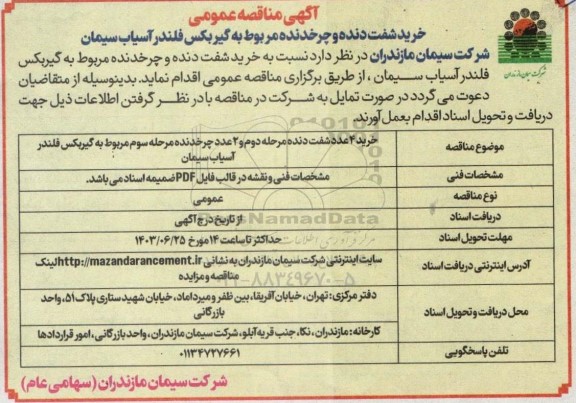 آگهی مناقصه عمومی
خرید شفت دنده و چرخدنده مربوط به گیربکس فلندر آسیاب سیمان
شرکت سیمان مازندران در نظر دارد نسبت به خرید شفت دنده و چرخدنده مربوط به گیربکس
فلندر آسیاب سیمان ، از طریق برگزاری مناقصه عمومی اقدام نماید. بدینوسیله از متقاضیان
دعوت می گردد در صورت تمایل به شرکت در مناقصه با در نظر گرفتن اطلاعات ذیل جهت
دریافت و تحویل اسناد اقدام بعمل آورند.
شرکت سیمان مازندران
موضوع مناقصه
خرید ۴ عدد شفت دنده مرحله دوم و ۲ عدد چرخدنده مرحله سوم مربوط به گیربکس فلندر
آسیاب سیمان
مشخصات فنی
مشخصات فنی و نقشه در قالب فایل PDF ضمیمه اسناد می باشد.
نوع مناقصه
عمومی
دریافت اسناد
از تاریخ درج آگهی
مهلت تحویل اسناد
حداکثر تا ساعت ۱۴ مورخ ۱۴۰۳/۰۶/۲۵
آدرس اینترنتی دریافت اسناد
سایت اینترنتی شرکت سیمان مازندران به نشانی http://mazandarancement.ir لینک
مناقصه و مزایده
محل دریافت و تحویل اسناد
دفتر مرکزی: تهران ، خیابان آفریقا، بین ظفر و میرداماد، خیابان شهید ستاری پلاک ۵۱، واحد
بازرگانی
کارخانه: مازندران ، نکا، جنب قریه آبلو، شرکت سیمان مازندران ، واحد بازرگانی ، امور قراردادها
تلفن پاسخگویی
۰۱۱۳۴۷۲۷۶۶۱
شرکت سیمان مازندران (سهامی عام)
ParsNamadData
۰۲۱-۸۸۳۴۹۶۷۰-۵